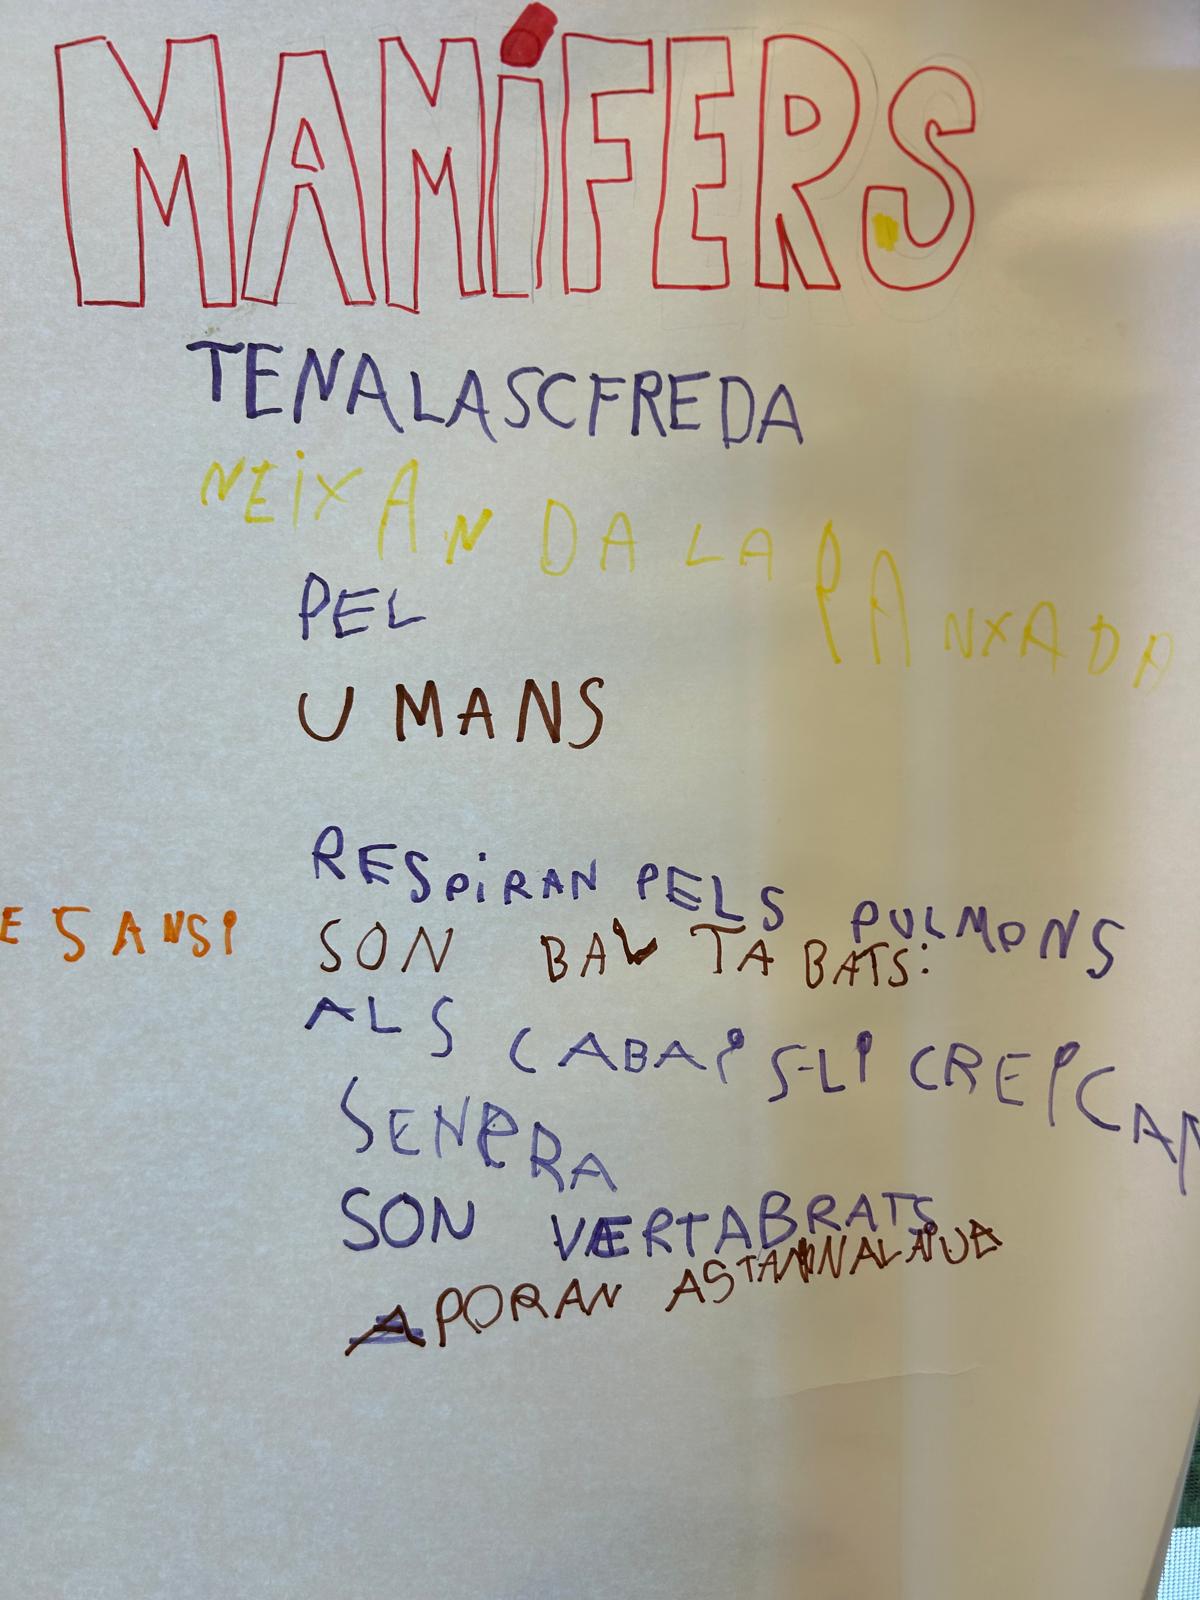 MAMÍFERS
TENALASCFREDA
NEIXAN DA LA PANXADA
PEL
UMANS
RESPIRAN PELS PULMONS
SON BAL TABATS:
ALS CABAIS-LI CREICAN
SENPRA
SON VERTABRATS
APORAN